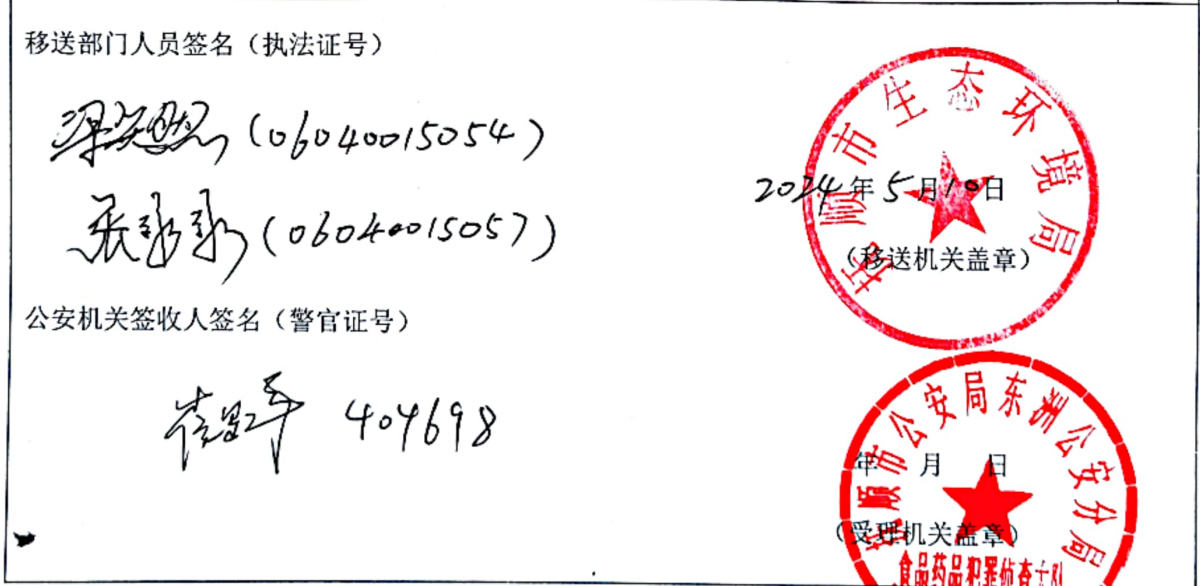 移送部门人员签名（执法证号）
(06040015054)
张 (06040015057)
抚顺市生态环境局
2024年5月10日
（移送机关盖章）
公安机关签收人签名（警官证号）
404698
抚顺市公安局东洲公安分局
年 月 日
（受理机关盖章）
食品药品犯罪侦查大队